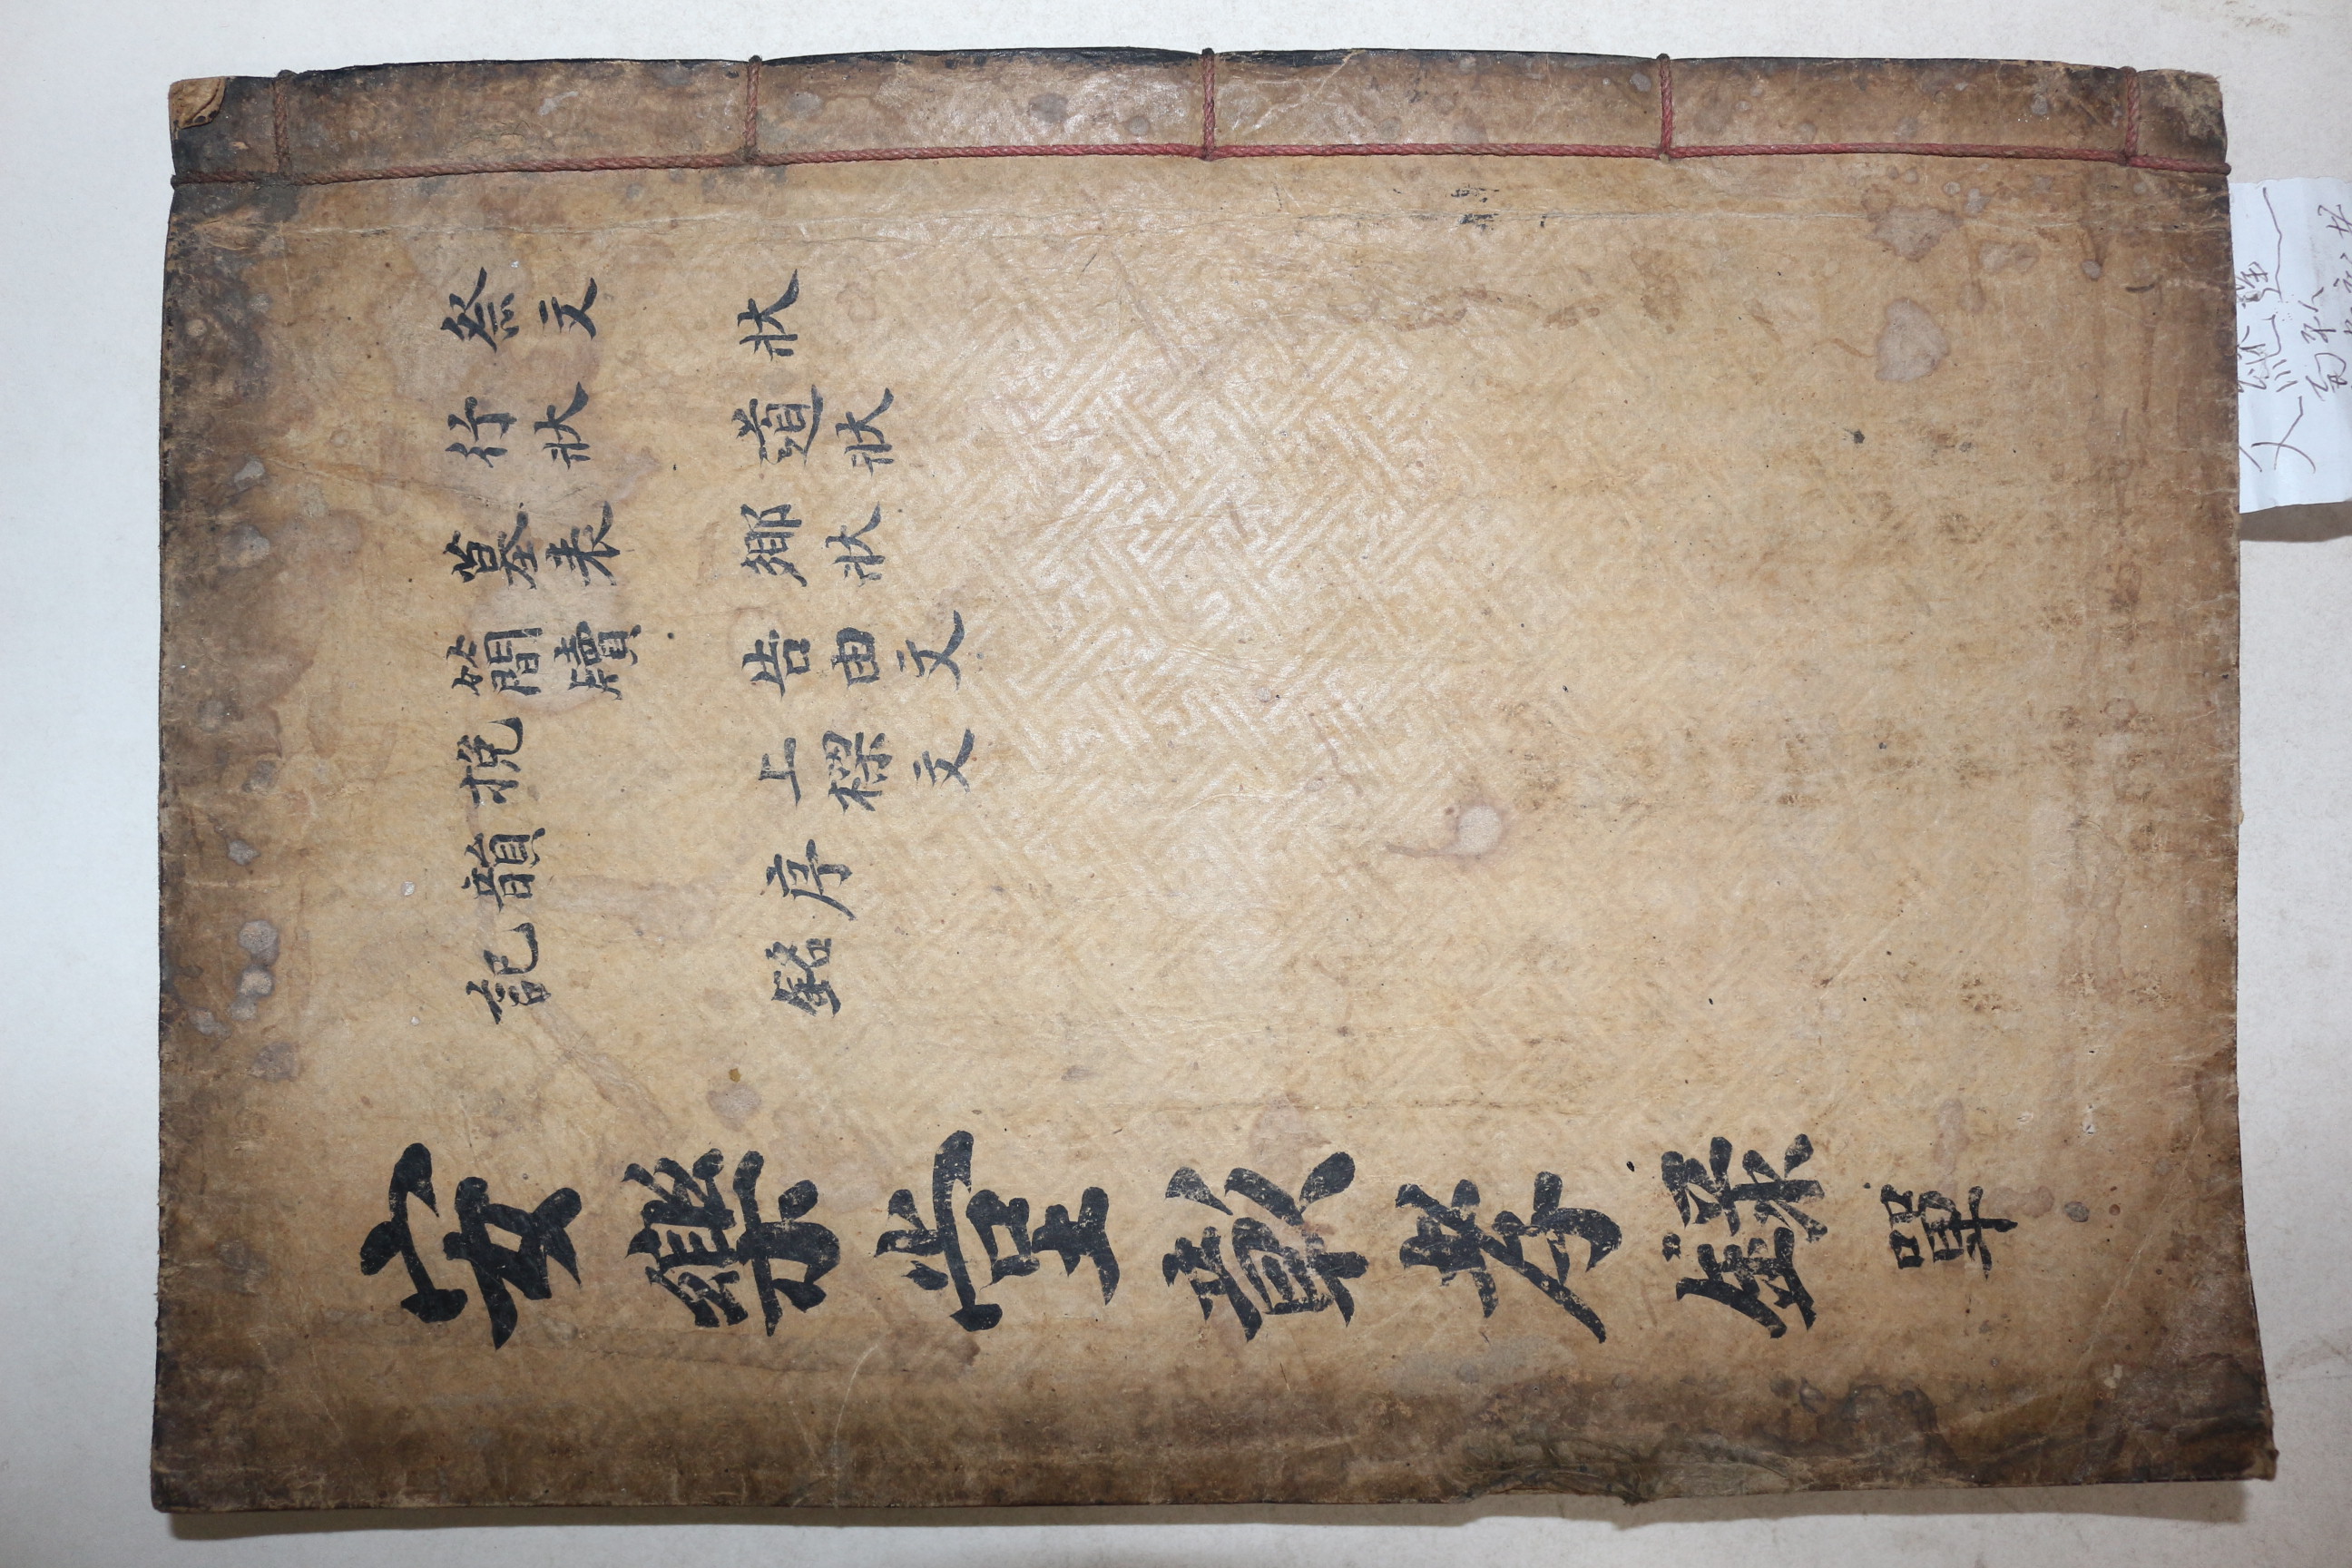 祭文
行狀
墓表
簡牘
挽
韻
記
狀
道狀
鄉狀
告由文
上樑文
序
銘
安樂堂彰孝錄 單